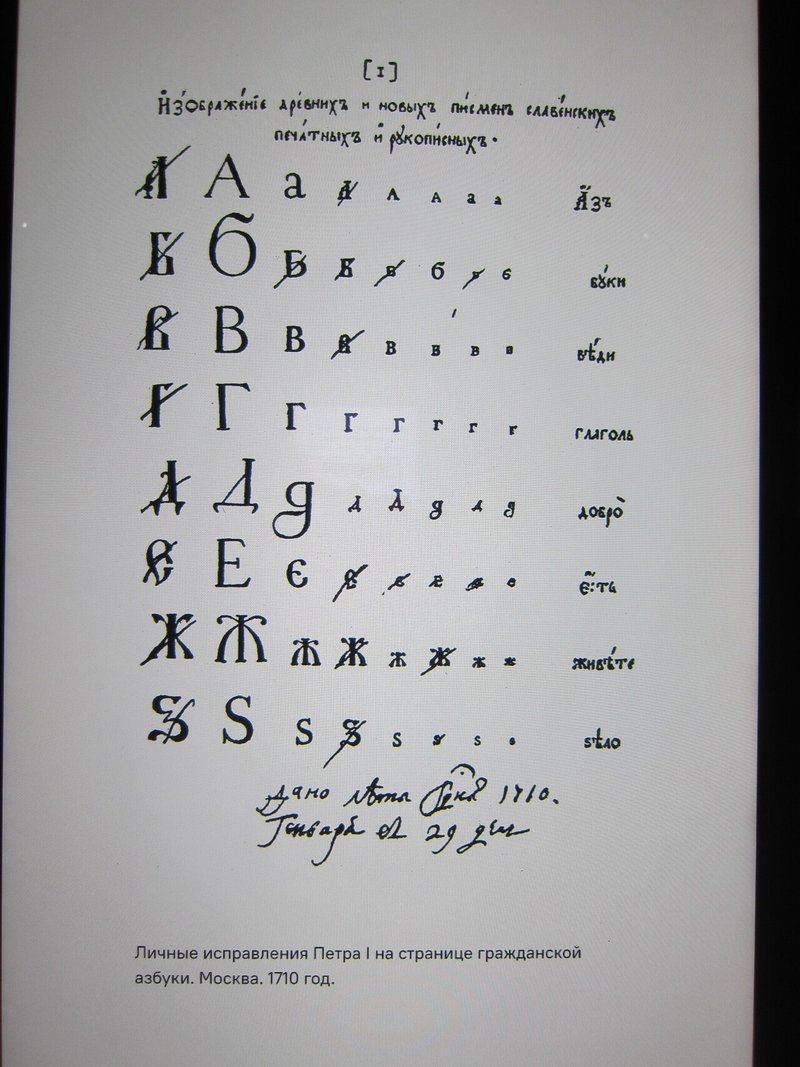 [1]
И҆зѡбраже́нїе дре́внихъ и новыхъ пи́сменъ славе́нскихъ
печа́тныхъ и҆ рꙋкопи́сныхъ.
А А а а а а а а А҆́зъ
Б Б Б Б в б г б бꙋ́ки
В В в в в в в в вѣ́ди
Г Г г г г г г г глаголь
Д Д д д д д д д добро̀
Е Е є е е е е е є҆́сть
Ж Ж ж ж ж ж ж ж живѣ́те
Ѕ Ѕ ѕ ѕ ѕ ѕ ѕ ѕ ѕѣло
Дано лѣта 1710.
Генваря в 29 день
Личные исправления Петра I на странице гражданской
азбуки. Москва. 1710 год.